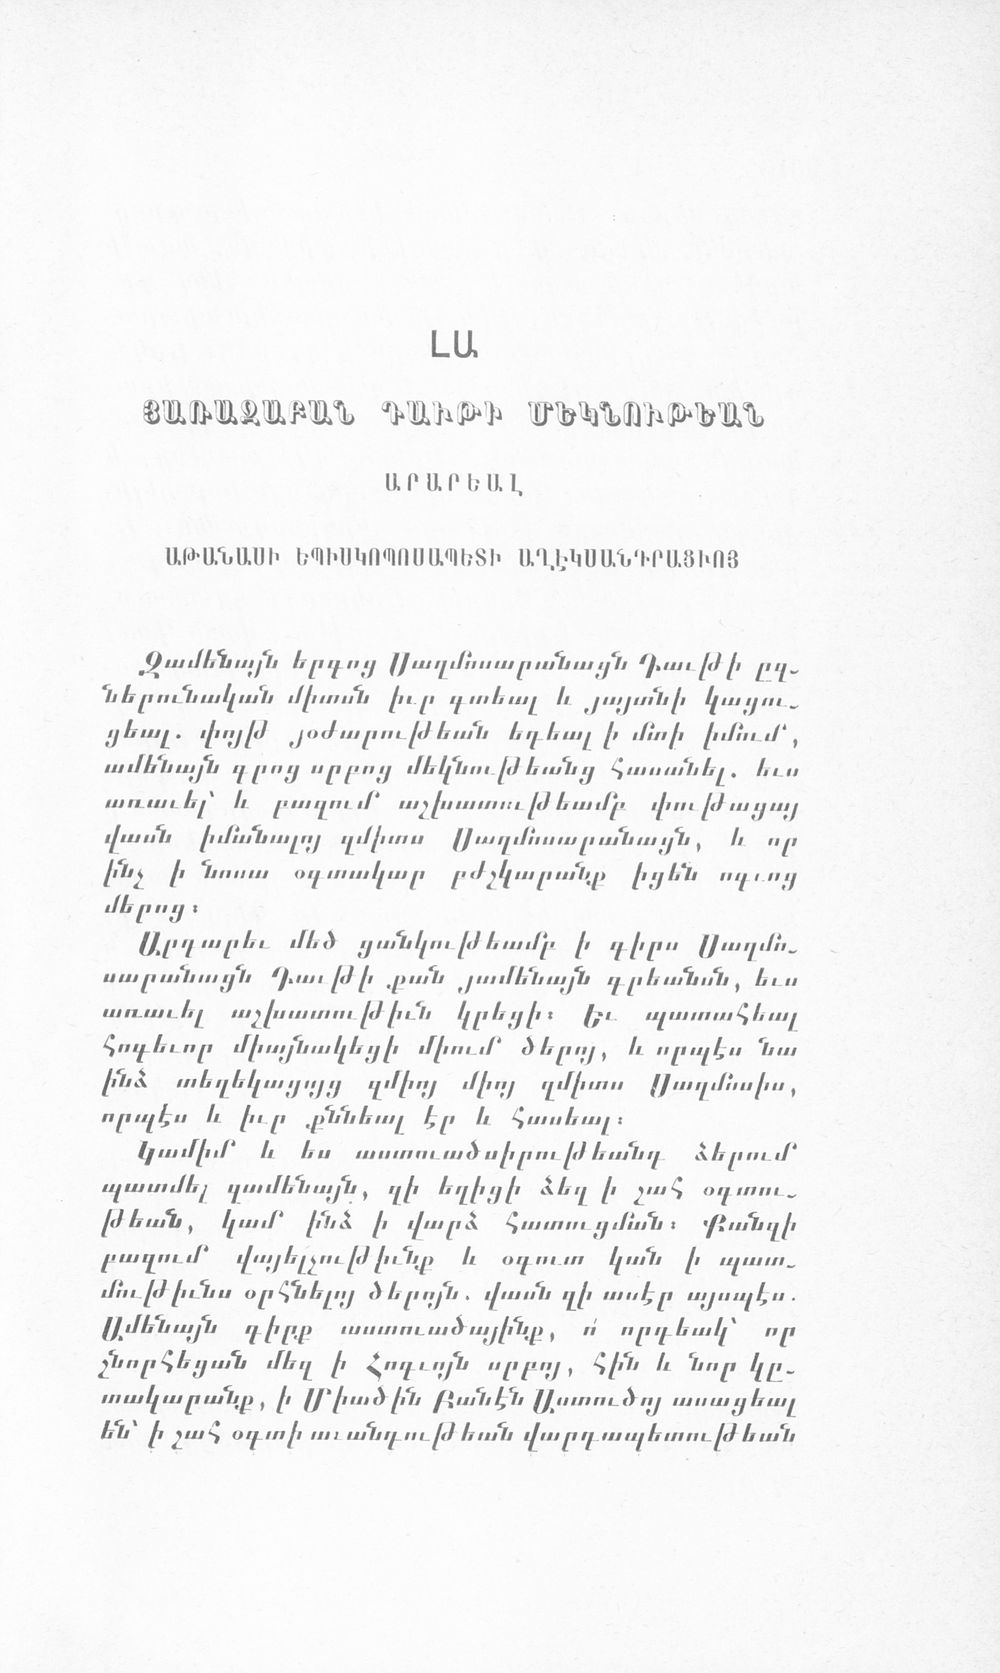 ԼԱ
ՅԱՌԱՋԱԲԱՆ ԴԱՒԹԻ ՄԵԿՆՈՒԹԵԱՆ
ԱՐԱՐԵԱԼ
ԱԹԱՆԱՍԻ ԵՊԻՍԿՈՊՈՍԱՊԵՏԻ ԱՂԷԿՍԱՆԴՐԱՑԻՈՅ
Զամենայն երգոց Սաղմոսարանացն Դաւթի ըզ-
ներունական միտսն իւր գտեալ և յայտնի կացու-
ցեալ. փոյթ յօժարութեան եղեալ ի մտի իմում՝,
ամենայն գրոց սրբոց մեկնութեանց հասանել. եւս
առաւել՝ և բազում՝ աշխատութեամբ փութացայ
վասն իմանալոյ զմիտս Սաղմոսարանացն, և որ
ինչ ի նոսա օգտակար բժշկարանք իցեն ոգւոց
մերոց:
Արդարեւ մեծ ցանկութեամբ ի գիրս Սաղմո-
սարանացն Դաւթի քան յամենայն գրեանսն, եւս
առաւել աշխատութիւն կրեցի: Եւ պատահեալ
հոգեւոր միայնակեցի միում՝ ծերոյ, և որպէս նա
ինձ տեղեկացոյց զմիոյ միոյ զմիտս Սաղմոսիս,
որպէս և իւր քննեալ էր և հասեալ:
Կամիմ՝ և ես աստուածսիրութեանդ ձերում՝
պատմել զամենայն, զի եղիցի ձեզ ի շահ օգտու-
թեան, կամ՝ ինձ ի վարձ հատուցման: Քանզի
բազում՝ վայելչութիւնք և օգուտ կան ի պատ-
մութիւնս օրհնելոյ ծերոյն. վասն զի ասէր այսպէս.
Ամենայն գիրք աստուածայինք, ո՛ որդեակ՝ որ
շնորհեցան մեզ ի Հոգւոյն սրբոյ, հին և նոր կը-
տակարանք, ի Միածին Բանէն Աստուծոյ ասացեալ
են՝ ի շահ օգտի աւանդութեան վարդապետութեան